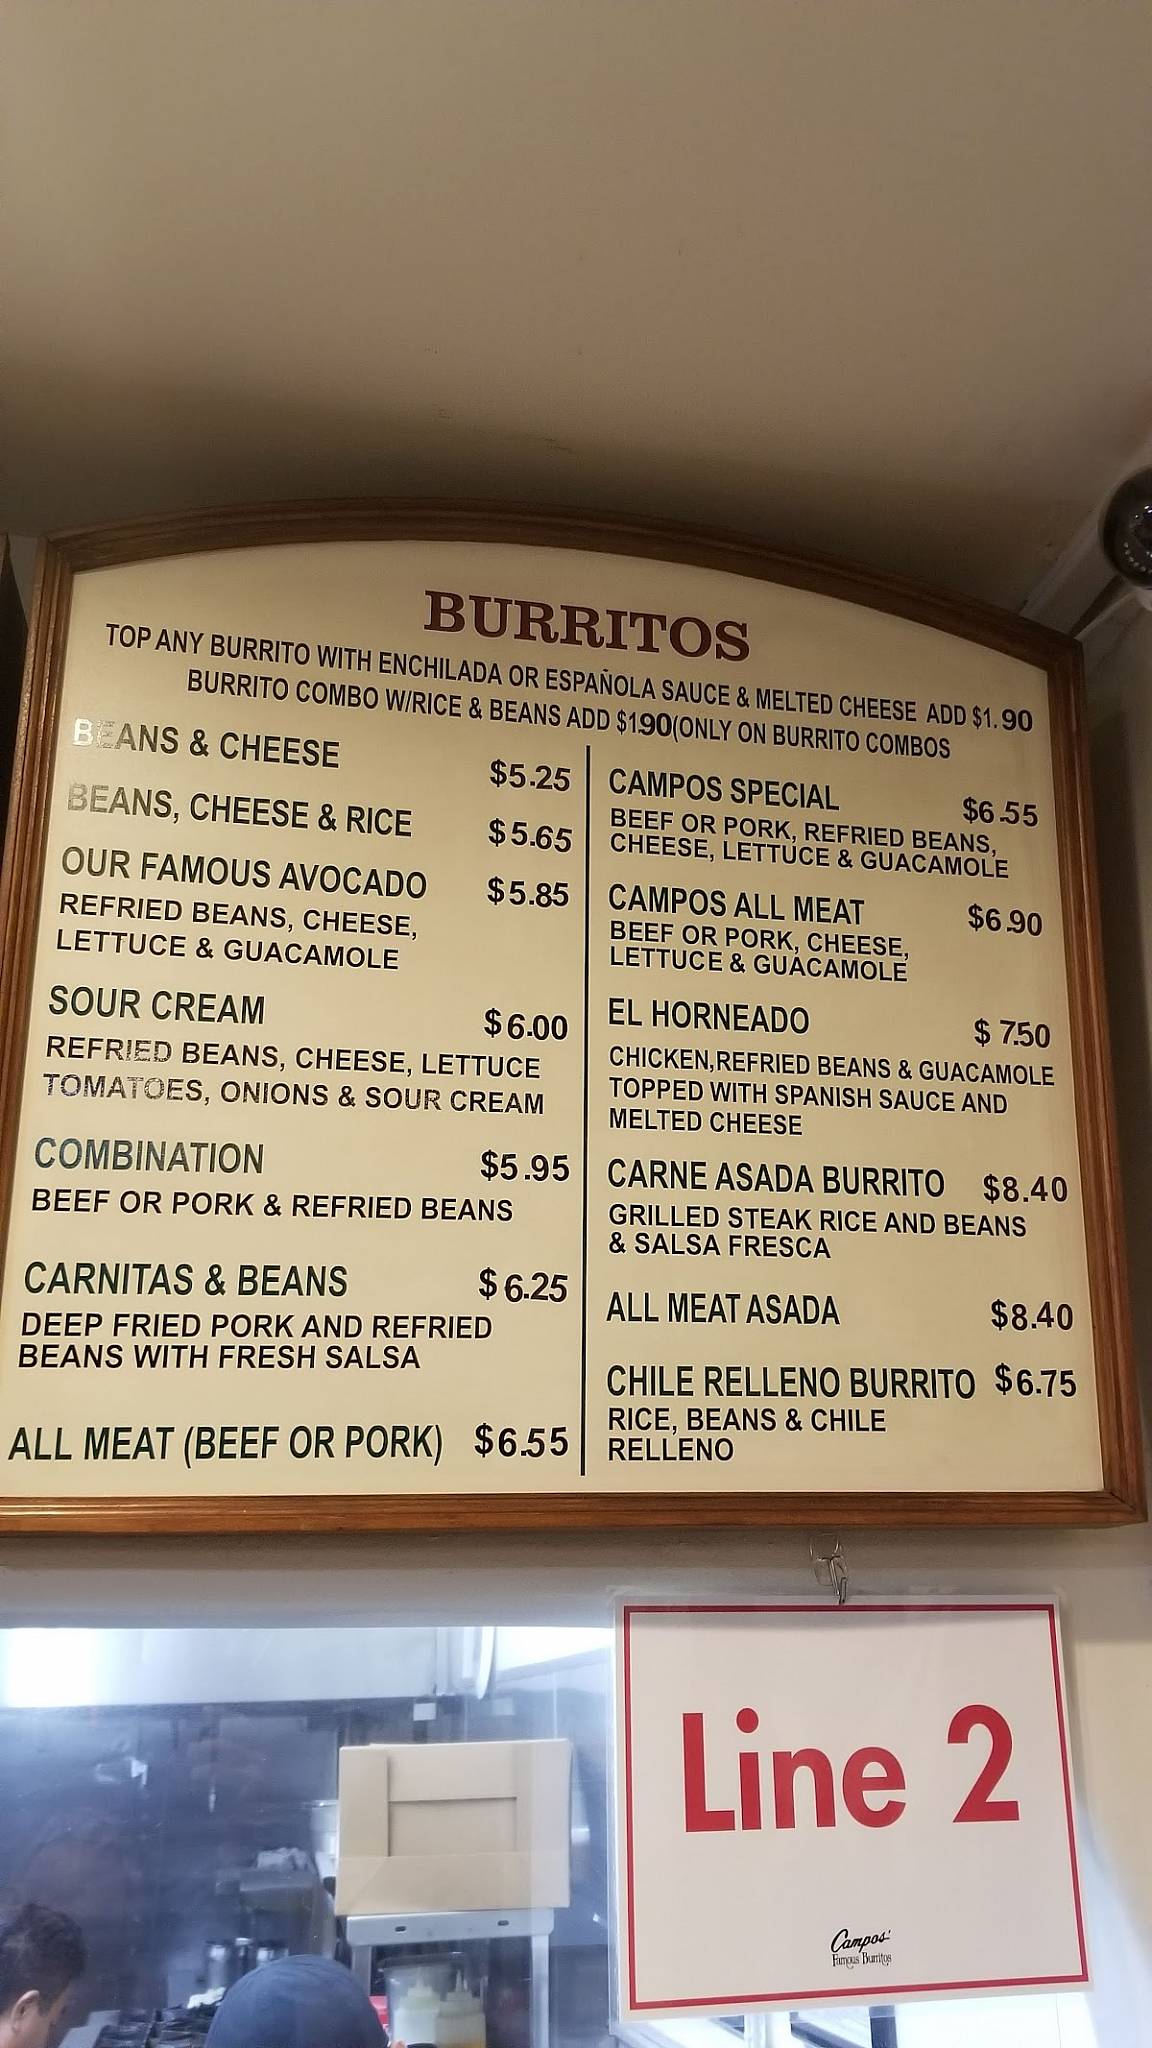 BURRITOS
TOP ANY BURRITO WITH ENCHILADA OR ESPAÑOLA SAUCE & MELTED CHEESE ADD $1.90
BURRITO COMBO W/RICE & BEANS ADD $1.90(ONLY ON BURRITO COMBOS
BEANS & CHEESE $5.25
BEANS, CHEESE & RICE $5.65
OUR FAMOUS AVOCADO $5.85
REFRIED BEANS, CHEESE,
LETTUCE & GUACAMOLE
SOUR CREAM $6.00
REFRIED BEANS, CHEESE, LETTUCE
TOMATOES, ONIONS & SOUR CREAM
COMBINATION $5.95
BEEF OR PORK & REFRIED BEANS
CARNITAS & BEANS $6.25
DEEP FRIED PORK AND REFRIED
BEANS WITH FRESH SALSA
ALL MEAT (BEEF OR PORK) $6.55
CAMPOS SPECIAL $6.55
BEEF OR PORK, REFRIED BEANS,
CHEESE, LETTUCE & GUACAMOLE
CAMPOS ALL MEAT $6.90
BEEF OR PORK, CHEESE,
LETTUCE & GUACAMOLE
EL HORNEADO $7.50
CHICKEN,REFRIED BEANS & GUACAMOLE
TOPPED WITH SPANISH SAUCE AND
MELTED CHEESE
CARNE ASADA BURRITO $8.40
GRILLED STEAK RICE AND BEANS
& SALSA FRESCA
ALL MEAT ASADA $8.40
CHILE RELLENO BURRITO $6.75
RICE, BEANS & CHILE
RELLENO
Line 2
Campos'
Famous Burritos